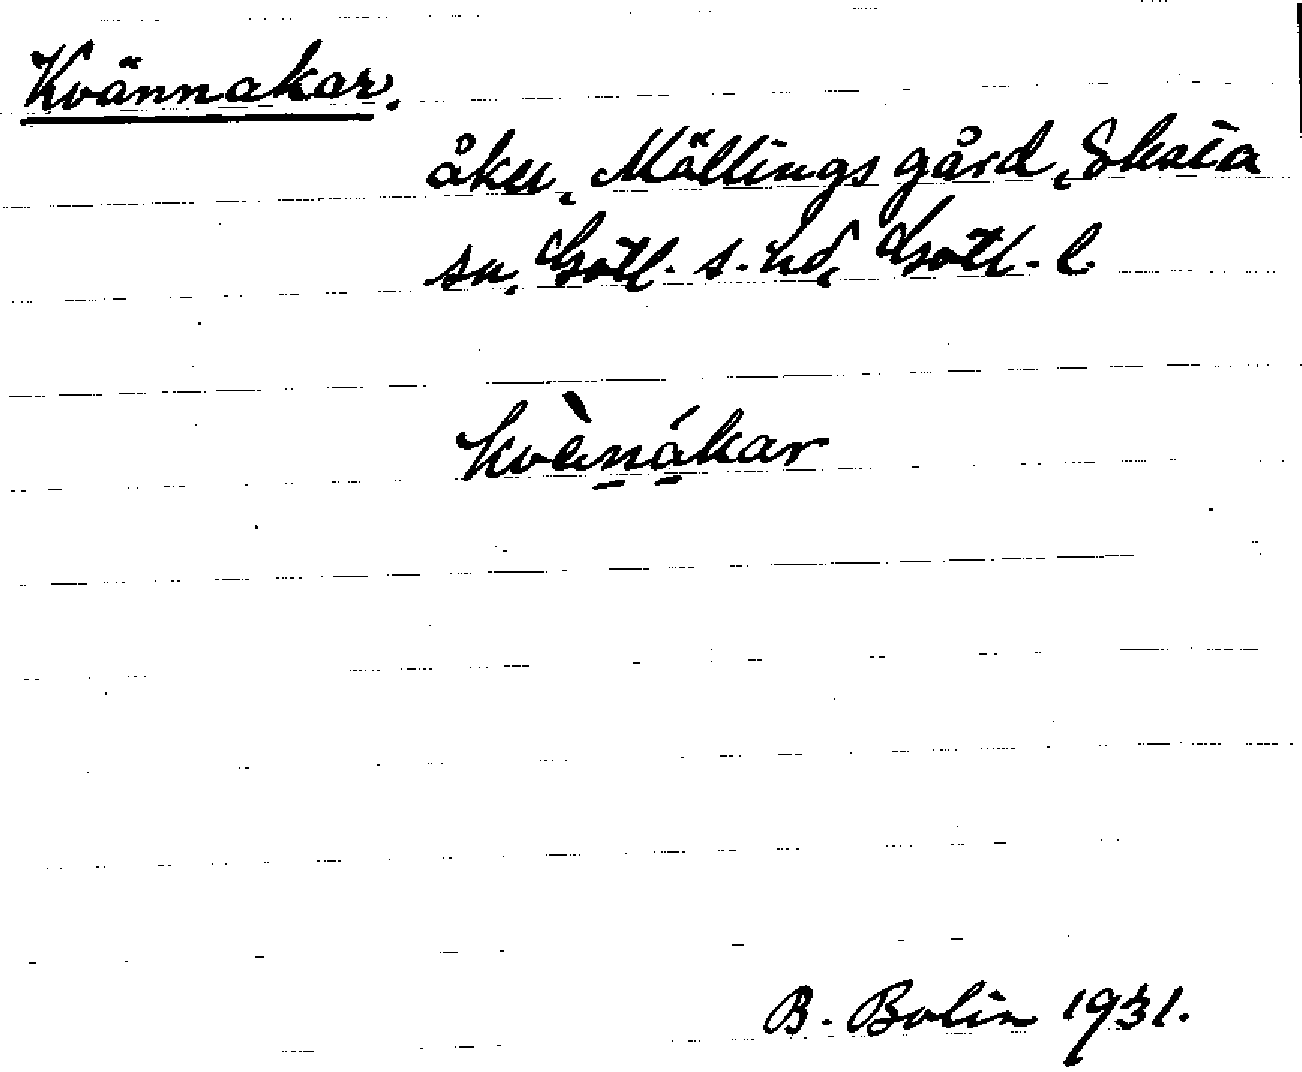 Kvännakar.
åker, Mällings gård, Eksta
sn, Gotl. s. hd, Gotl. l.
kvænákar
B. Bolin 1931.